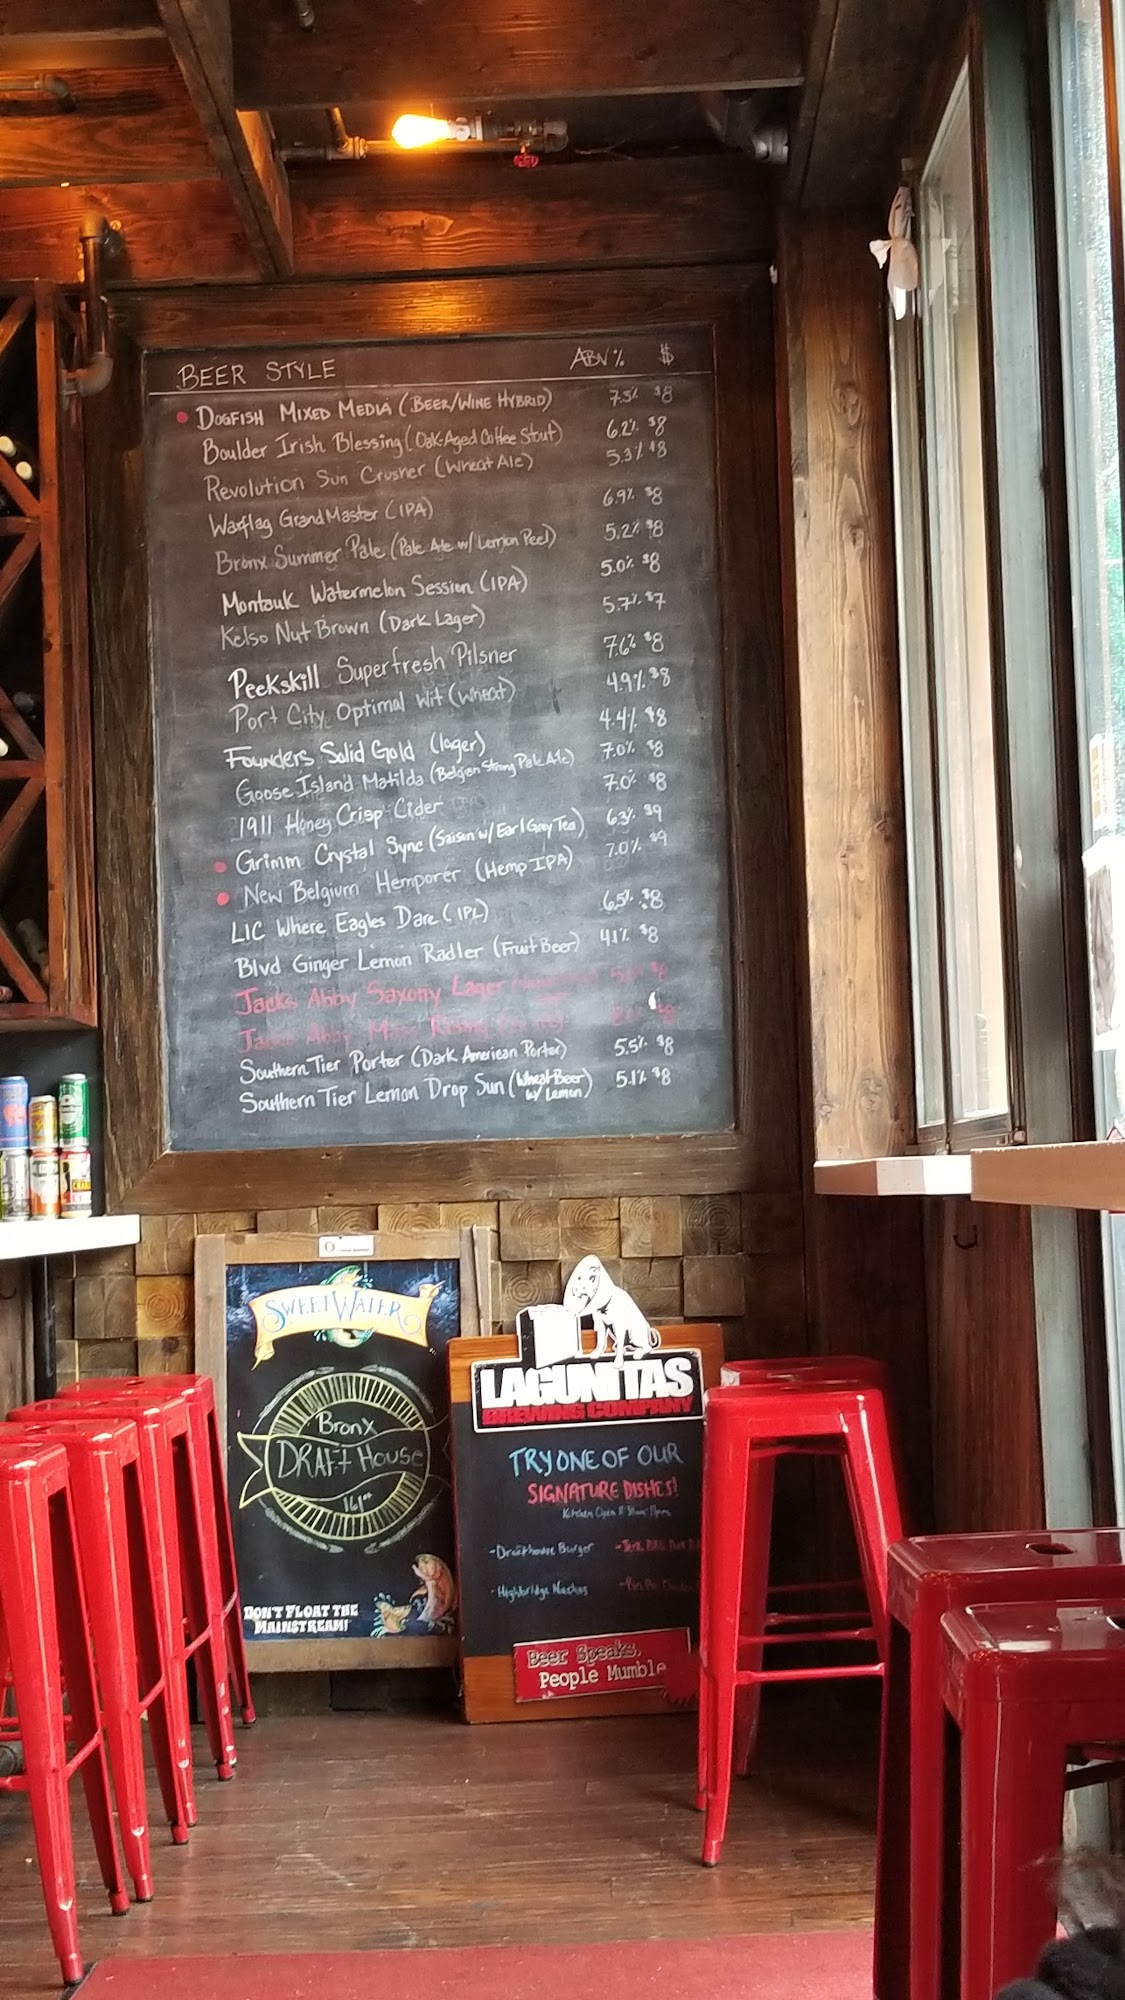 BEER STYLE ABV % $
DOGFISH MIXED MEDIA (BEER/WINE HYBRID) 7.5% $8
Boulder Irish Blessing (Oak-Aged Coffee Stout) 6.2% $8
Revolution Sun Crusher (Wheat Ale) 5.3% $8
Warflag GrandMaster (IPA) 6.9% $8
Bronx Summer Pale (Pale Ale w/ Lemon Peel) 5.2% $8
Montauk Watermelon Session (IPA) 5.0% $8
Kelso Nut Brown (Dark Lager) 5.7% $7
Peekskill Superfresh Pilsner 7.6% $8
Port City Optimal Wit (Wheat) 4.9% $8
Founders Solid Gold (lager) 4.4% $8
Goose Island Matilda (Belgian Strong Pale Ale) 7.0% $8
1911 Honey Crisp Cider 7.0% $8
Grimm Crystal Sync (Saison w/ Earl Grey Tea) 6.3% $9
New Belgium Hemporer (Hemp IPA) 7.0% $9
LIC Where Eagles Dare (IPL) 6.5% $8
Blvd Ginger Lemon Radler (Fruit Beer) 4.1% $8
Jacks Abby Saxony Lager $8
Jacks Abby $8
Southern Tier Porter (Dark American Porter) 5.5% $8
Southern Tier Lemon Drop Sun (Wheat Beer w/ Lemon) 5.1% $8
SWEETWATER
Bronx
DRAFT HOUSE
161
DON'T FLOAT THE
MAINSTREAM!
LAGUNITAS
BREWING COMPANY
TRY ONE OF OUR
SIGNATURE DISHES!
Kitchen Open
-Drafthouse Burger
-Highbridge Nachos
Beer Speaks.
People Mumble